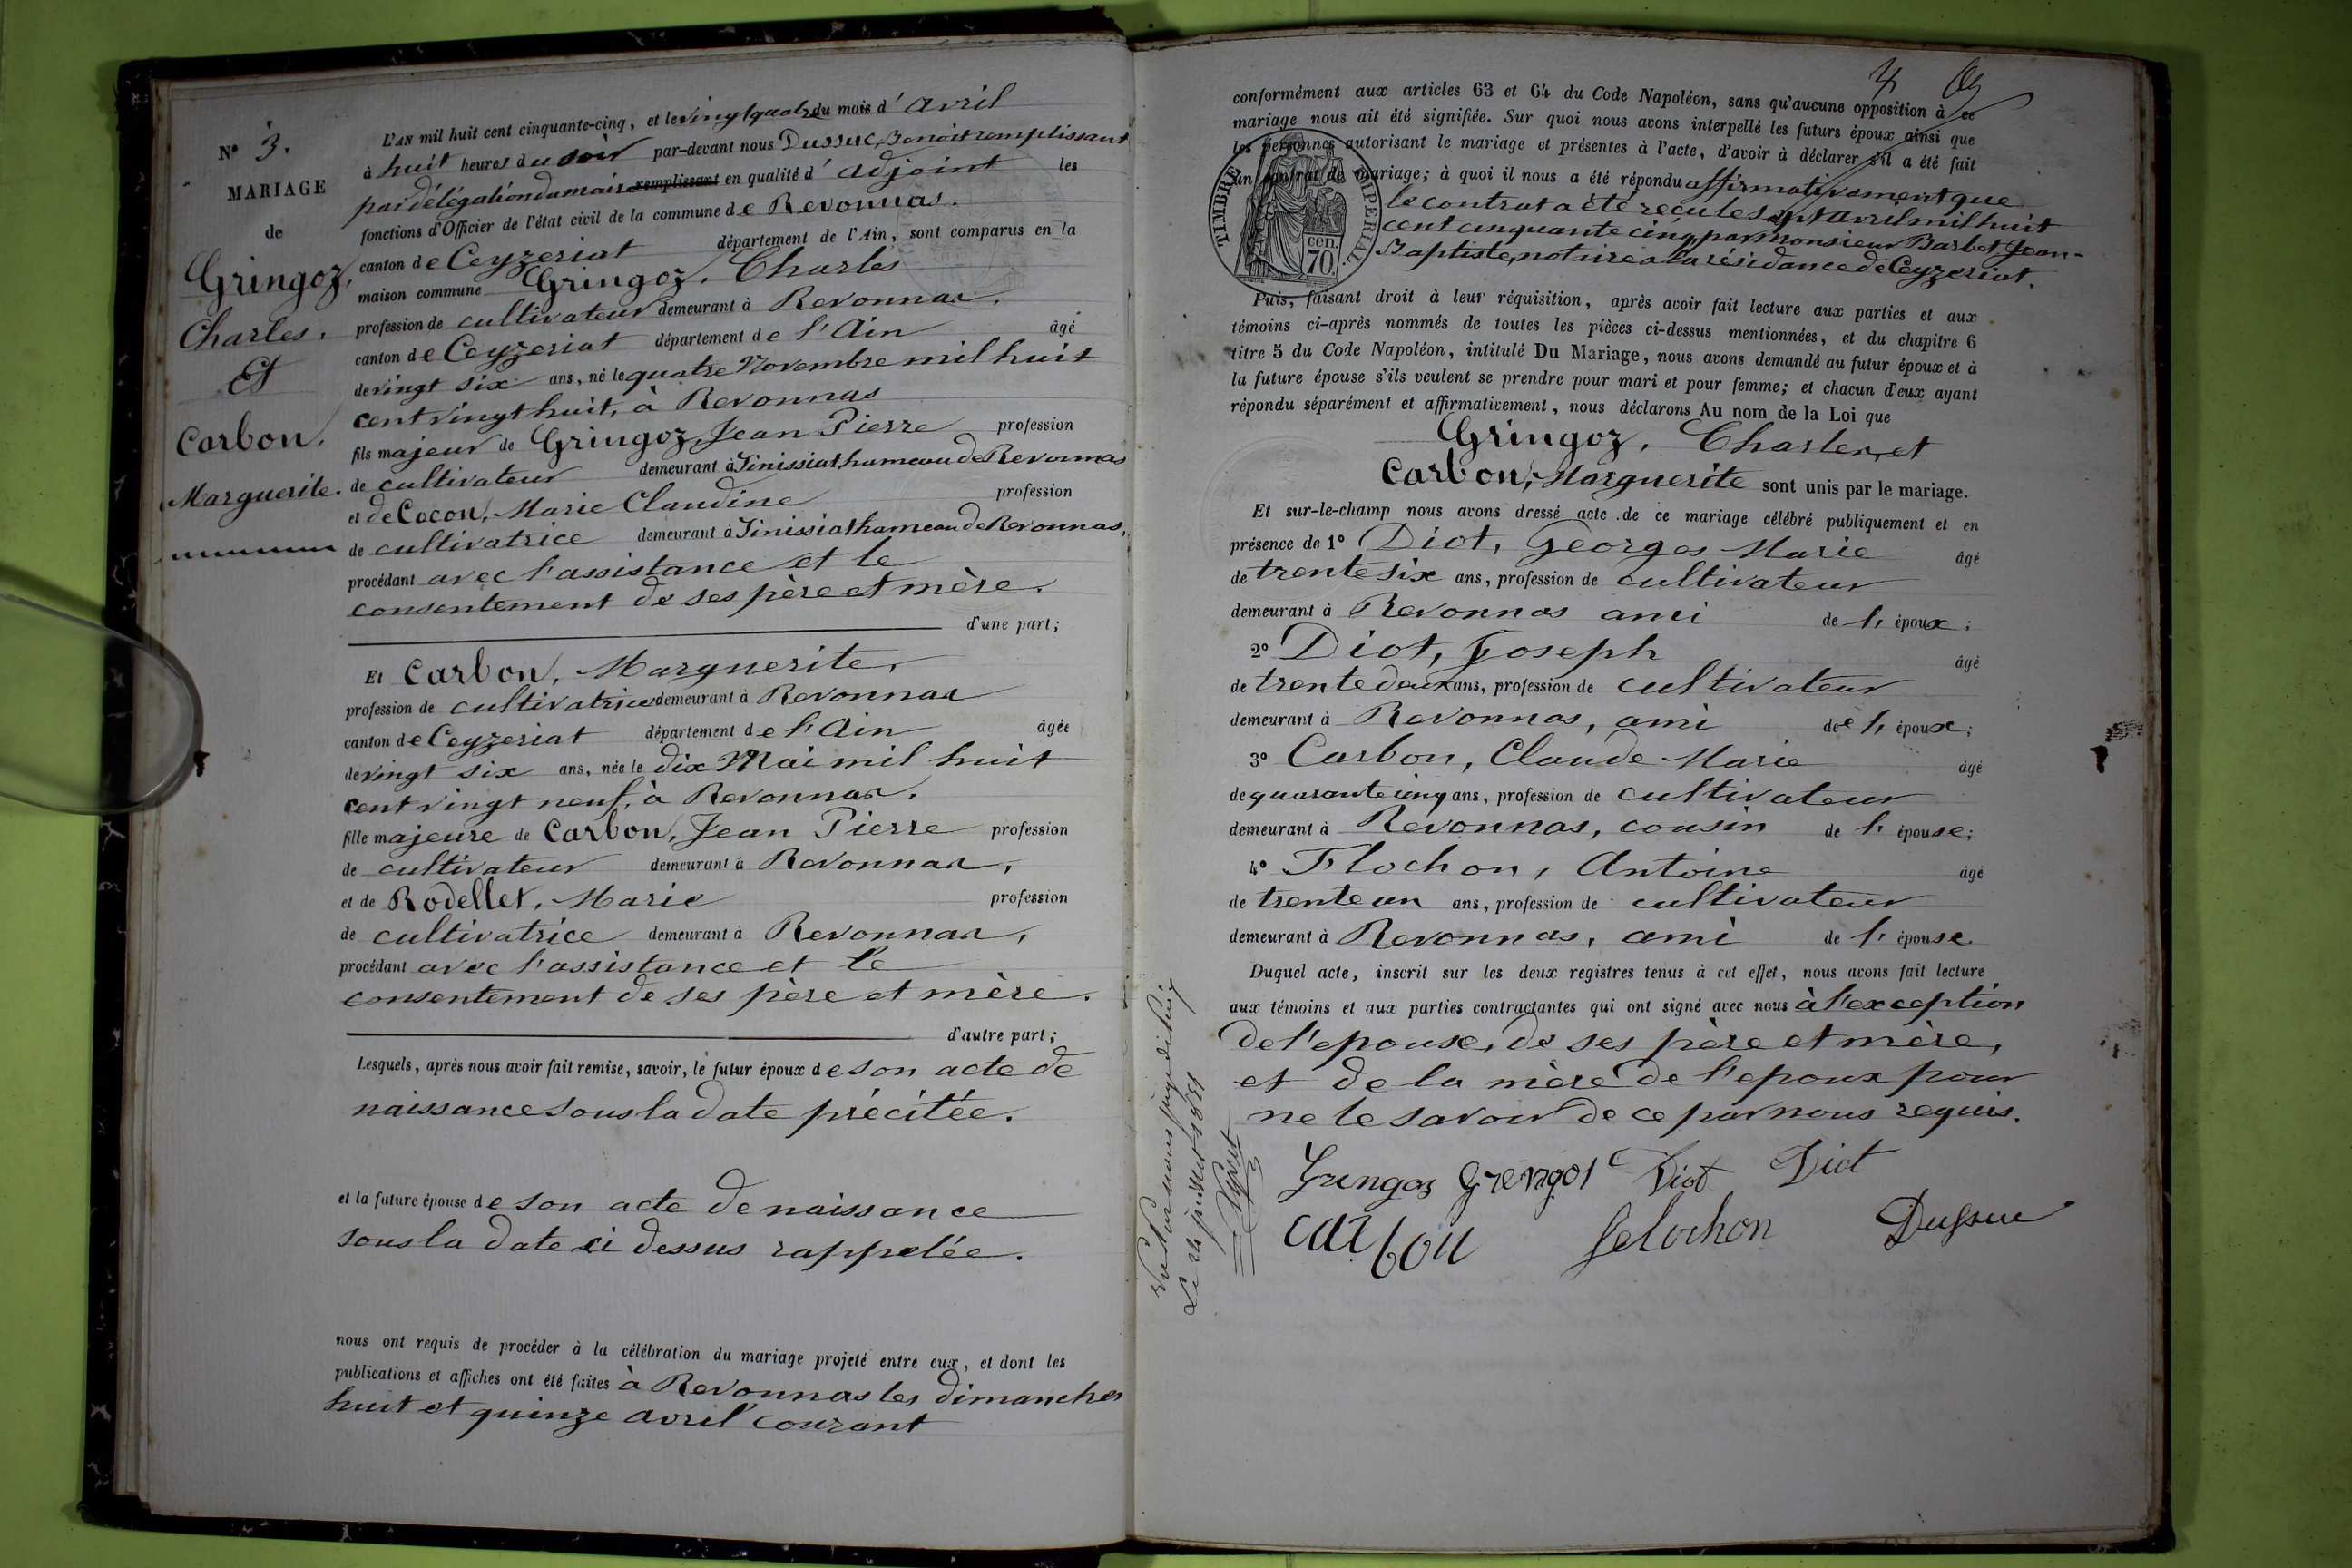 N° 3.
MARIAGE
de
Gringoz,
Charles.
Et
Carbon,
Marguerite.
L'AN mil huit cent cinquante-cinq, et le vingt quatre du mois d' avril
à huit heures du soir par-devant nous Dussuc, Benoit remplissant
par délégation du maire remplissant en qualité d' adjoint les
fonctions d'Officier de l'état civil de la commune de Revonnas.
canton de Ceyzeriat département de l'Ain, sont comparus en la
maison commune Gringoz, Charles
profession de cultivateur demeurant à Revonnas,
canton de Ceyzeriat département de l'Ain âgé
de vingt six ans, né le quatre Novembre mil huit
cent vingt huit, à Revonnas
fils majeur de Gringoz, Jean Pierre profession
de cultivateur demeurant à Sinissiat hameau de Revonnas
et de Cocon, Marie Claudine profession
de cultivatrice demeurant à Sinissiat hameau de Revonnas,
procédant avec l'assistance et le
consentement de ses père et mère.
d'une part;
Et Carbon, Marguerite,
profession de cultivatrice demeurant à Revonnas
canton de Ceyzeriat département de l'Ain âgée
de vingt six ans, née le dix Mai mil huit
cent vingt neuf, à Revonnas.
fille majeure de Carbon, Jean Pierre profession
de cultivateur demeurant à Revonnas,
et de Rodellet, Marie profession
de cultivatrice demeurant à Revonnas,
procédant avec l'assistance et le
consentement de ses père et mère.
d'autre part;
Lesquels, après nous avoir fait remise, savoir, le futur époux de son acte de
naissance sous la date précitée.
et la future épouse de son acte de naissance
sous la date ci dessus rappelée.
nous ont requis de procéder à la célébration du mariage projeté entre eux, et dont les
publications et affiches ont été faites à Revonnas les dimanches
huit et quinze avril courant
4
conformément aux articles 63 et 64 du Code Napoléon, sans qu'aucune opposition à ce
mariage nous ait été signifiée. Sur quoi nous avons interpellé les futurs époux ainsi que
les personnes autorisant le mariage et présentes à l'acte, d'avoir à déclarer s'il a été fait
un contrat de mariage; à quoi il nous a été répondu affirmativement que
le contrat a été reçu le sept avril mil huit
cent cinquante cinq, par Monsieur Barbet Jean-
Baptiste, notaire à la résidance de Ceyzeriat.
TIMBRE IMPERIAL
cen.
70.
Puis, faisant droit à leur réquisition, après avoir fait lecture aux parties et aux
témoins ci-après nommés de toutes les pièces ci-dessus mentionnées, et du chapitre 6
titre 5 du Code Napoléon, intitulé Du Mariage, nous avons demandé au futur époux et à
la future épouse s'ils veulent se prendre pour mari et pour femme; et chacun d'eux ayant
répondu séparément et affirmativement, nous déclarons Au nom de la Loi que
Gringoz, Charles, et
Carbon, Marguerite sont unis par le mariage.
Et sur-le-champ nous avons dressé acte de ce mariage célébré publiquement et en
présence de 1° Diot, Georges Marie âgé
de trente six ans, profession de cultivateur
demeurant à Revonnas ami de l'époux;
2° Diot, Joseph âgé
de trente deux ans, profession de cultivateur
demeurant à Revonnas, ami de l'époux;
3° Carbon, Claude Marie âgé
de quarante cinq ans, profession de cultivateur
demeurant à Revonnas, cousin de l'épouse;
4° Flochon, Antoine âgé
de trente un ans, profession de cultivateur
demeurant à Revonnas, ami de l'épouse.
Duquel acte, inscrit sur les deux registres tenus à cet effet, nous avons fait lecture
aux témoins et aux parties contractantes qui ont signé avec nous à l'exception
de l'epouse, de ses père et mère,
et de la mère de l'epoux pour
ne le savoir de ce par nous requis.
Gringoz Grengot Diot Diot
Carbon felochon Dussuc
Vu par nous juge
Le 24 juillet